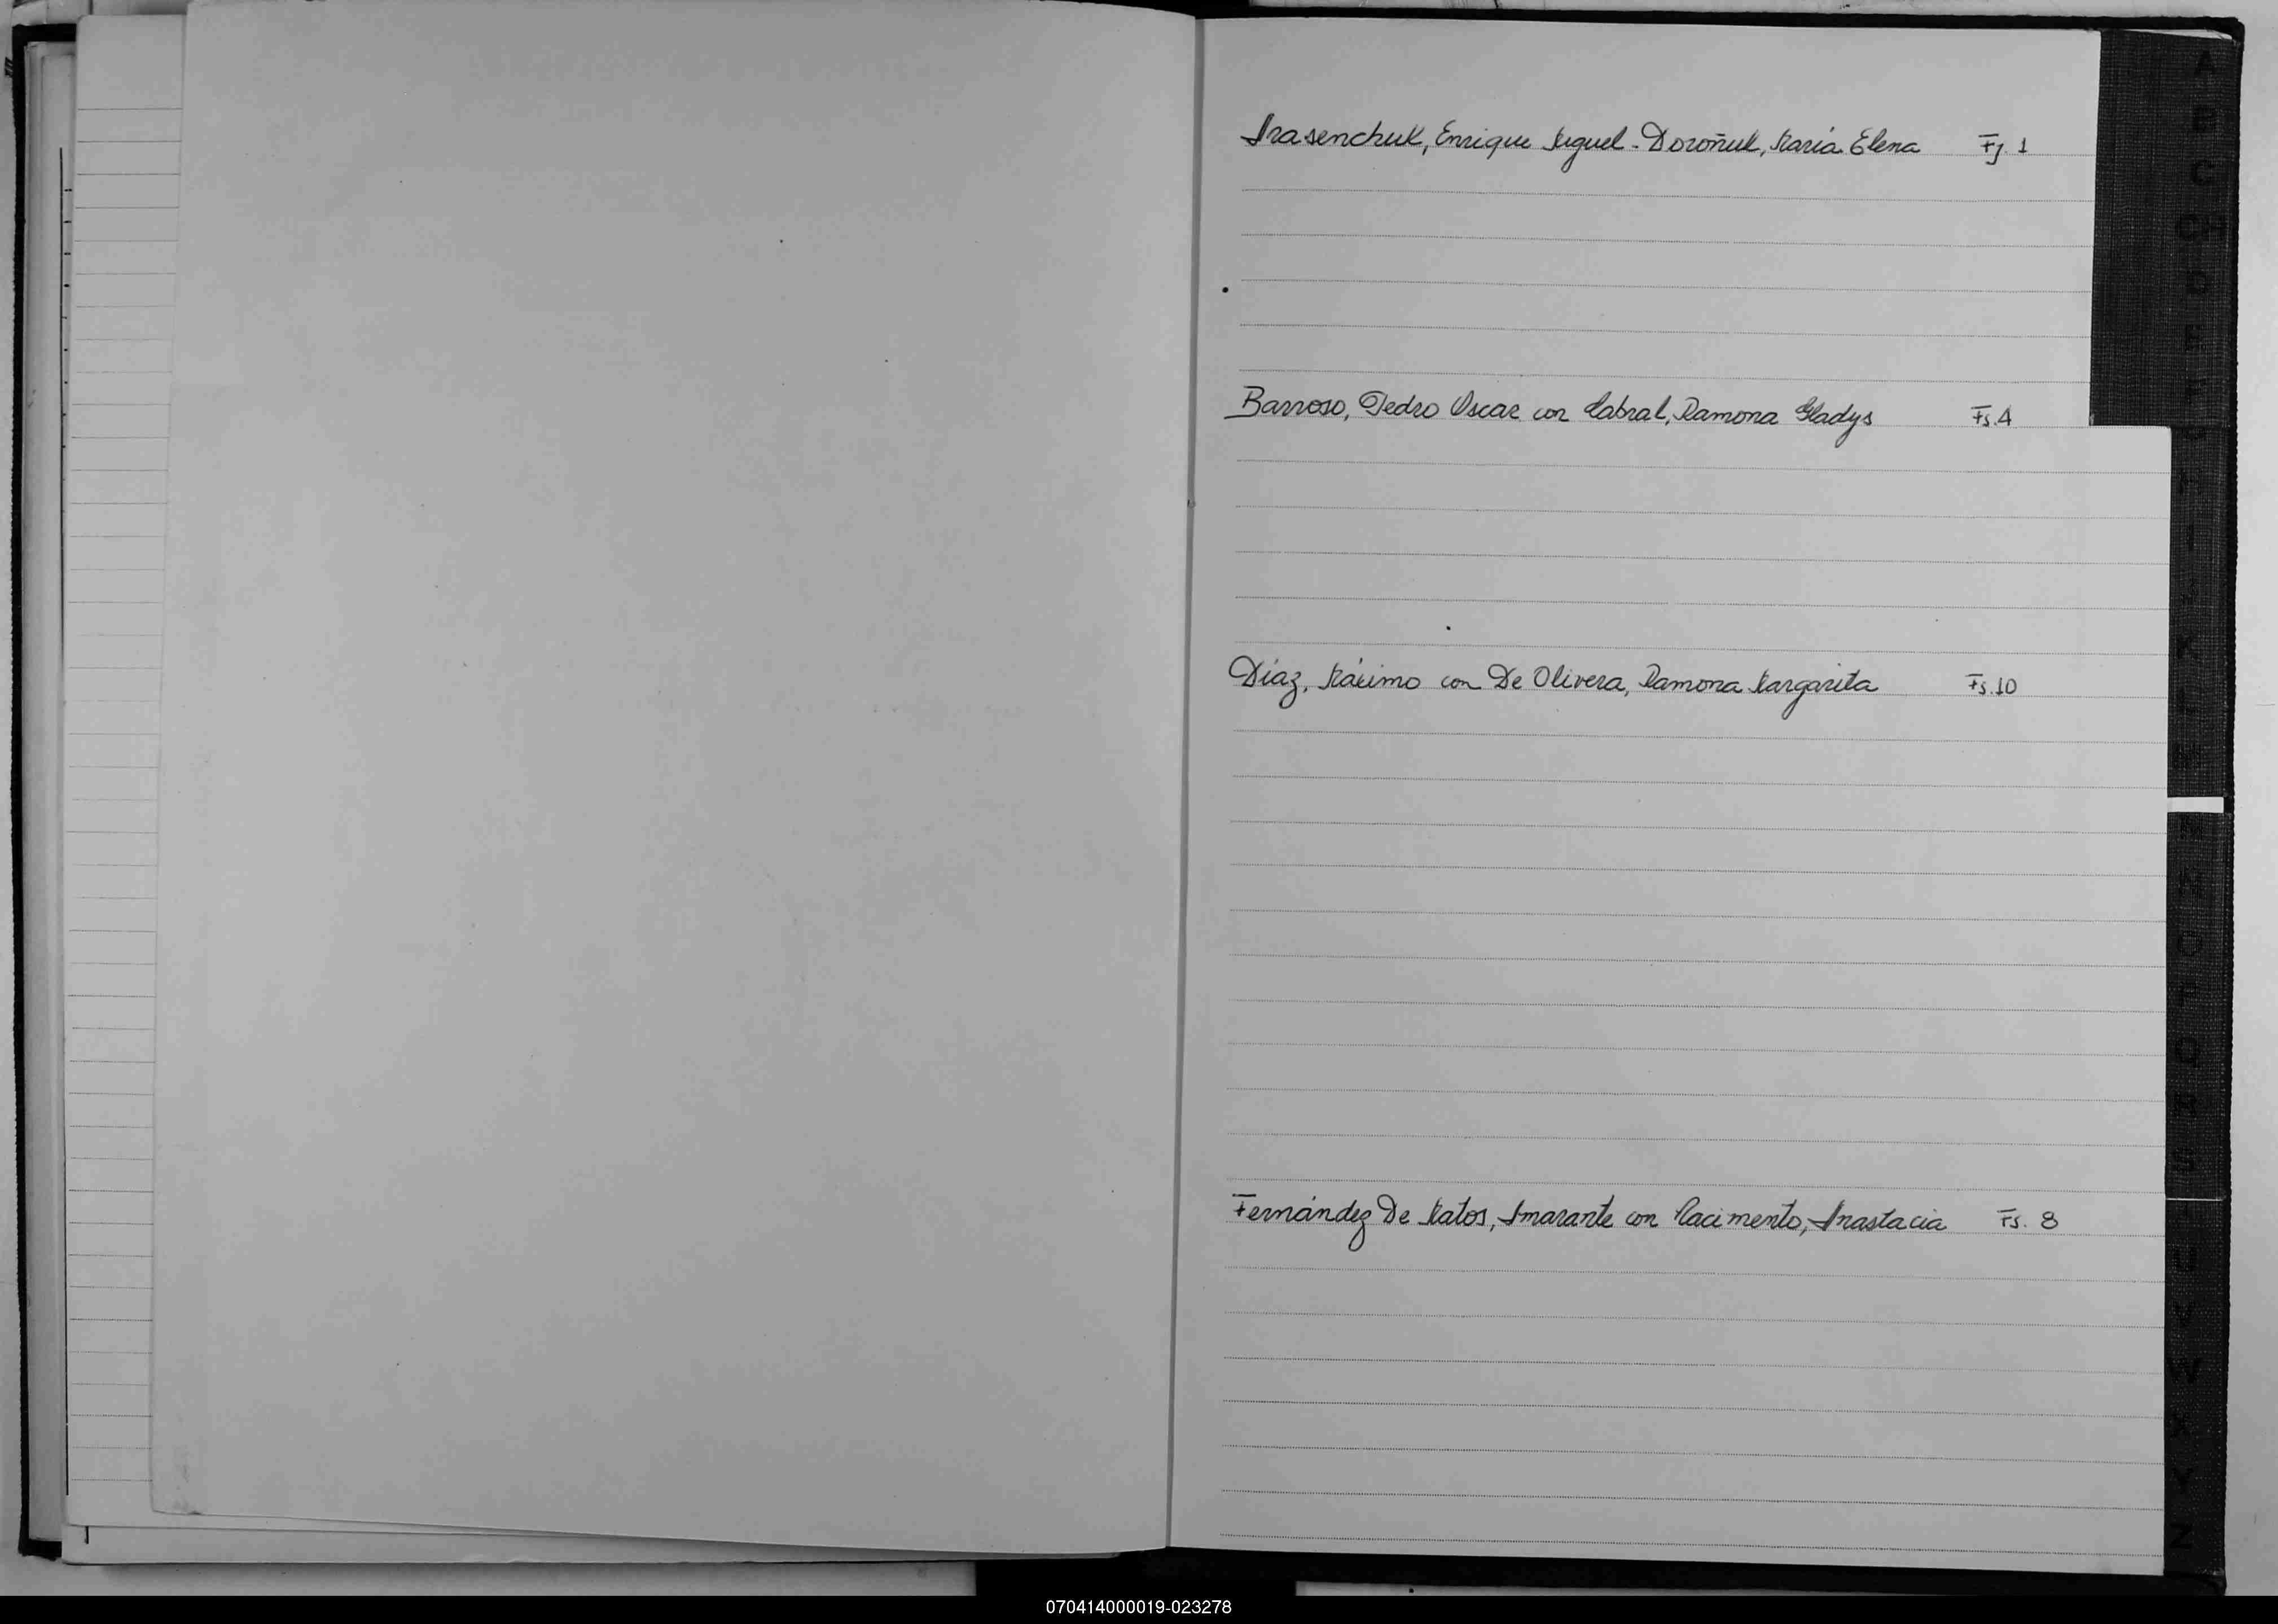 Arasenchuk, Enrique Miguel - Doroñuk, María Elena Fj. 1
Barroso, Pedro Oscar con Cabral, Ramona Gladys Fs. 4
Díaz, Máximo con De Olivera, Ramona Margarita Fs. 10
Fernández De Matos, Amarante con Nacimento, Anastacia Fs. 8
070414000019-023278